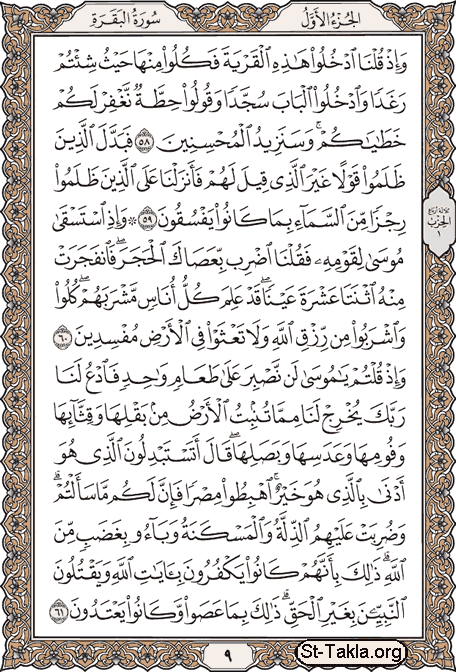 سُورَةُ البَقَرَةِ
الجُزْءُ الأَوَّلُ
وَإِذْ قُلْنَا ٱدْخُلُوا۟ هَٰذِهِ ٱلْقَرْيَةَ فَكُلُوا۟ مِنْهَا حَيْثُ شِئْتُمْ
رَغَدًا وَٱدْخُلُوا۟ ٱلْبَابَ سُجَّدًا وَقُولُوا۟ حِطَّةٌ نَّغْفِرْ لَكُمْ
خَطَٰيَٰكُمْ ۚ وَسَنَزِيدُ ٱلْمُحْسِنِينَ ٥٨ فَبَدَّلَ ٱلَّذِينَ
ظَلَمُوا۟ قَوْلًا غَيْرَ ٱلَّذِى قِيلَ لَهُمْ فَأَنزَلْنَا عَلَى ٱلَّذِينَ ظَلَمُوا۟
رِجْزًا مِّنَ ٱلسَّمَآءِ بِمَا كَانُوا۟ يَفْسُقُونَ ٥٩ ۞ وَإِذِ ٱسْتَسْقَىٰ
مُوسَىٰ لِقَوْمِهِۦ فَقُلْنَا ٱضْرِب بِّعَصَاكَ ٱلْحَجَرَ ۖ فَٱنفَجَرَتْ
مِنْهُ ٱثْنَتَا عَشْرَةَ عَيْنًا ۖ قَدْ عَلِمَ كُلُّ أُنَاسٍ مَّشْرَبَهُمْ ۖ كُلُوا۟
وَٱشْرَبُوا۟ مِن رِّزْقِ ٱللَّهِ وَلَا تَعْثَوْا۟ فِى ٱلْأَرْضِ مُفْسِدِينَ ٦٠
وَإِذْ قُلْتُمْ يَٰمُوسَىٰ لَن نَّصْبِرَ عَلَىٰ طَعَامٍ وَٰحِدٍ فَٱدْعُ لَنَا
رَبَّكَ يُخْرِجْ لَنَا مِمَّا تُنۢبِتُ ٱلْأَرْضُ مِنۢ بَقْلِهَا وَقِثَّآئِهَا
وَفُومِهَا وَعَدَسِهَا وَبَصَلِهَا ۖ قَالَ أَتَسْتَبْدِلُونَ ٱلَّذِى هُوَ
أَدْنَىٰ بِٱلَّذِى هُوَ خَيْرٌ ۚ ٱهْبِطُوا۟ مِصْرًا فَإِنَّ لَكُم مَّا سَأَلْتُمْ ۗ
وَضُرِبَتْ عَلَيْهِمُ ٱلذِّلَّةُ وَٱلْمَسْكَنَةُ وَبَآءُو بِغَضَبٍ مِّنَ
ٱللَّهِ ۗ ذَٰلِكَ بِأَنَّهُمْ كَانُوا۟ يَكْفُرُونَ بِـَٔايَٰتِ ٱللَّهِ وَيَقْتُلُونَ
ٱلنَّبِيِّـۧنَ بِغَيْرِ ٱلْحَقِّ ۗ ذَٰلِكَ بِمَا عَصَوا۟ وَّكَانُوا۟ يَعْتَدُونَ ٦١
ثلاثة أرباع
الحزب
١
٩
St-Takla.org